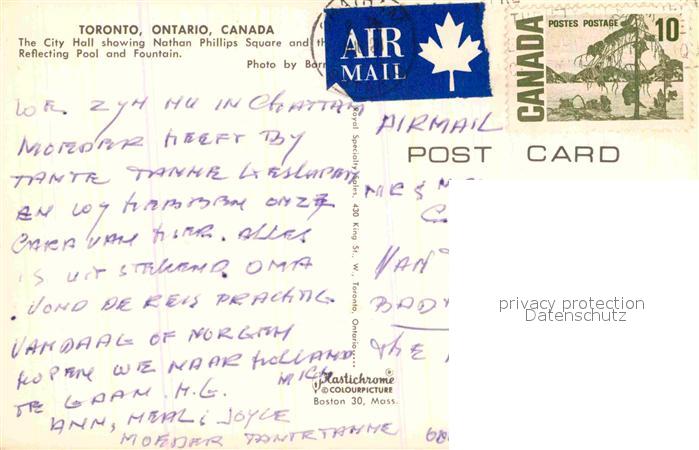 TORONTO, ONTARIO, CANADA
The City Hall showing Nathan Phillips Square and th
Reflecting Pool and Fountain.
Photo by Barn
AIR
MAIL
CANADA
POSTES POSTAGE
10
AIRMAIL
POST CARD
WE ZYN NU IN CHATTAM
MOEDER HEEFT BY
TANTE TANNE GESLAPEN
EN WY HEBBEN ONZE
CARAVAN HIER. ALLES
IS UITSTEKEND OMA
VOND DE REIS PRACHTIG.
VANDAAG OF MORGEN
HOPEN WE NAAR HOLLAND
TE GAAN. H.G. MICK
ANN, NEAL & JOYCE
MOEDER TANTE TANNE
MR &
VAN
BAD
THE
Royal Specialty Sales, 430 King St., W., Toronto, Ontario
Plastichrome
© COLOURPICTURE
Boston 30, Mass.
privacy protection
Datenschutz